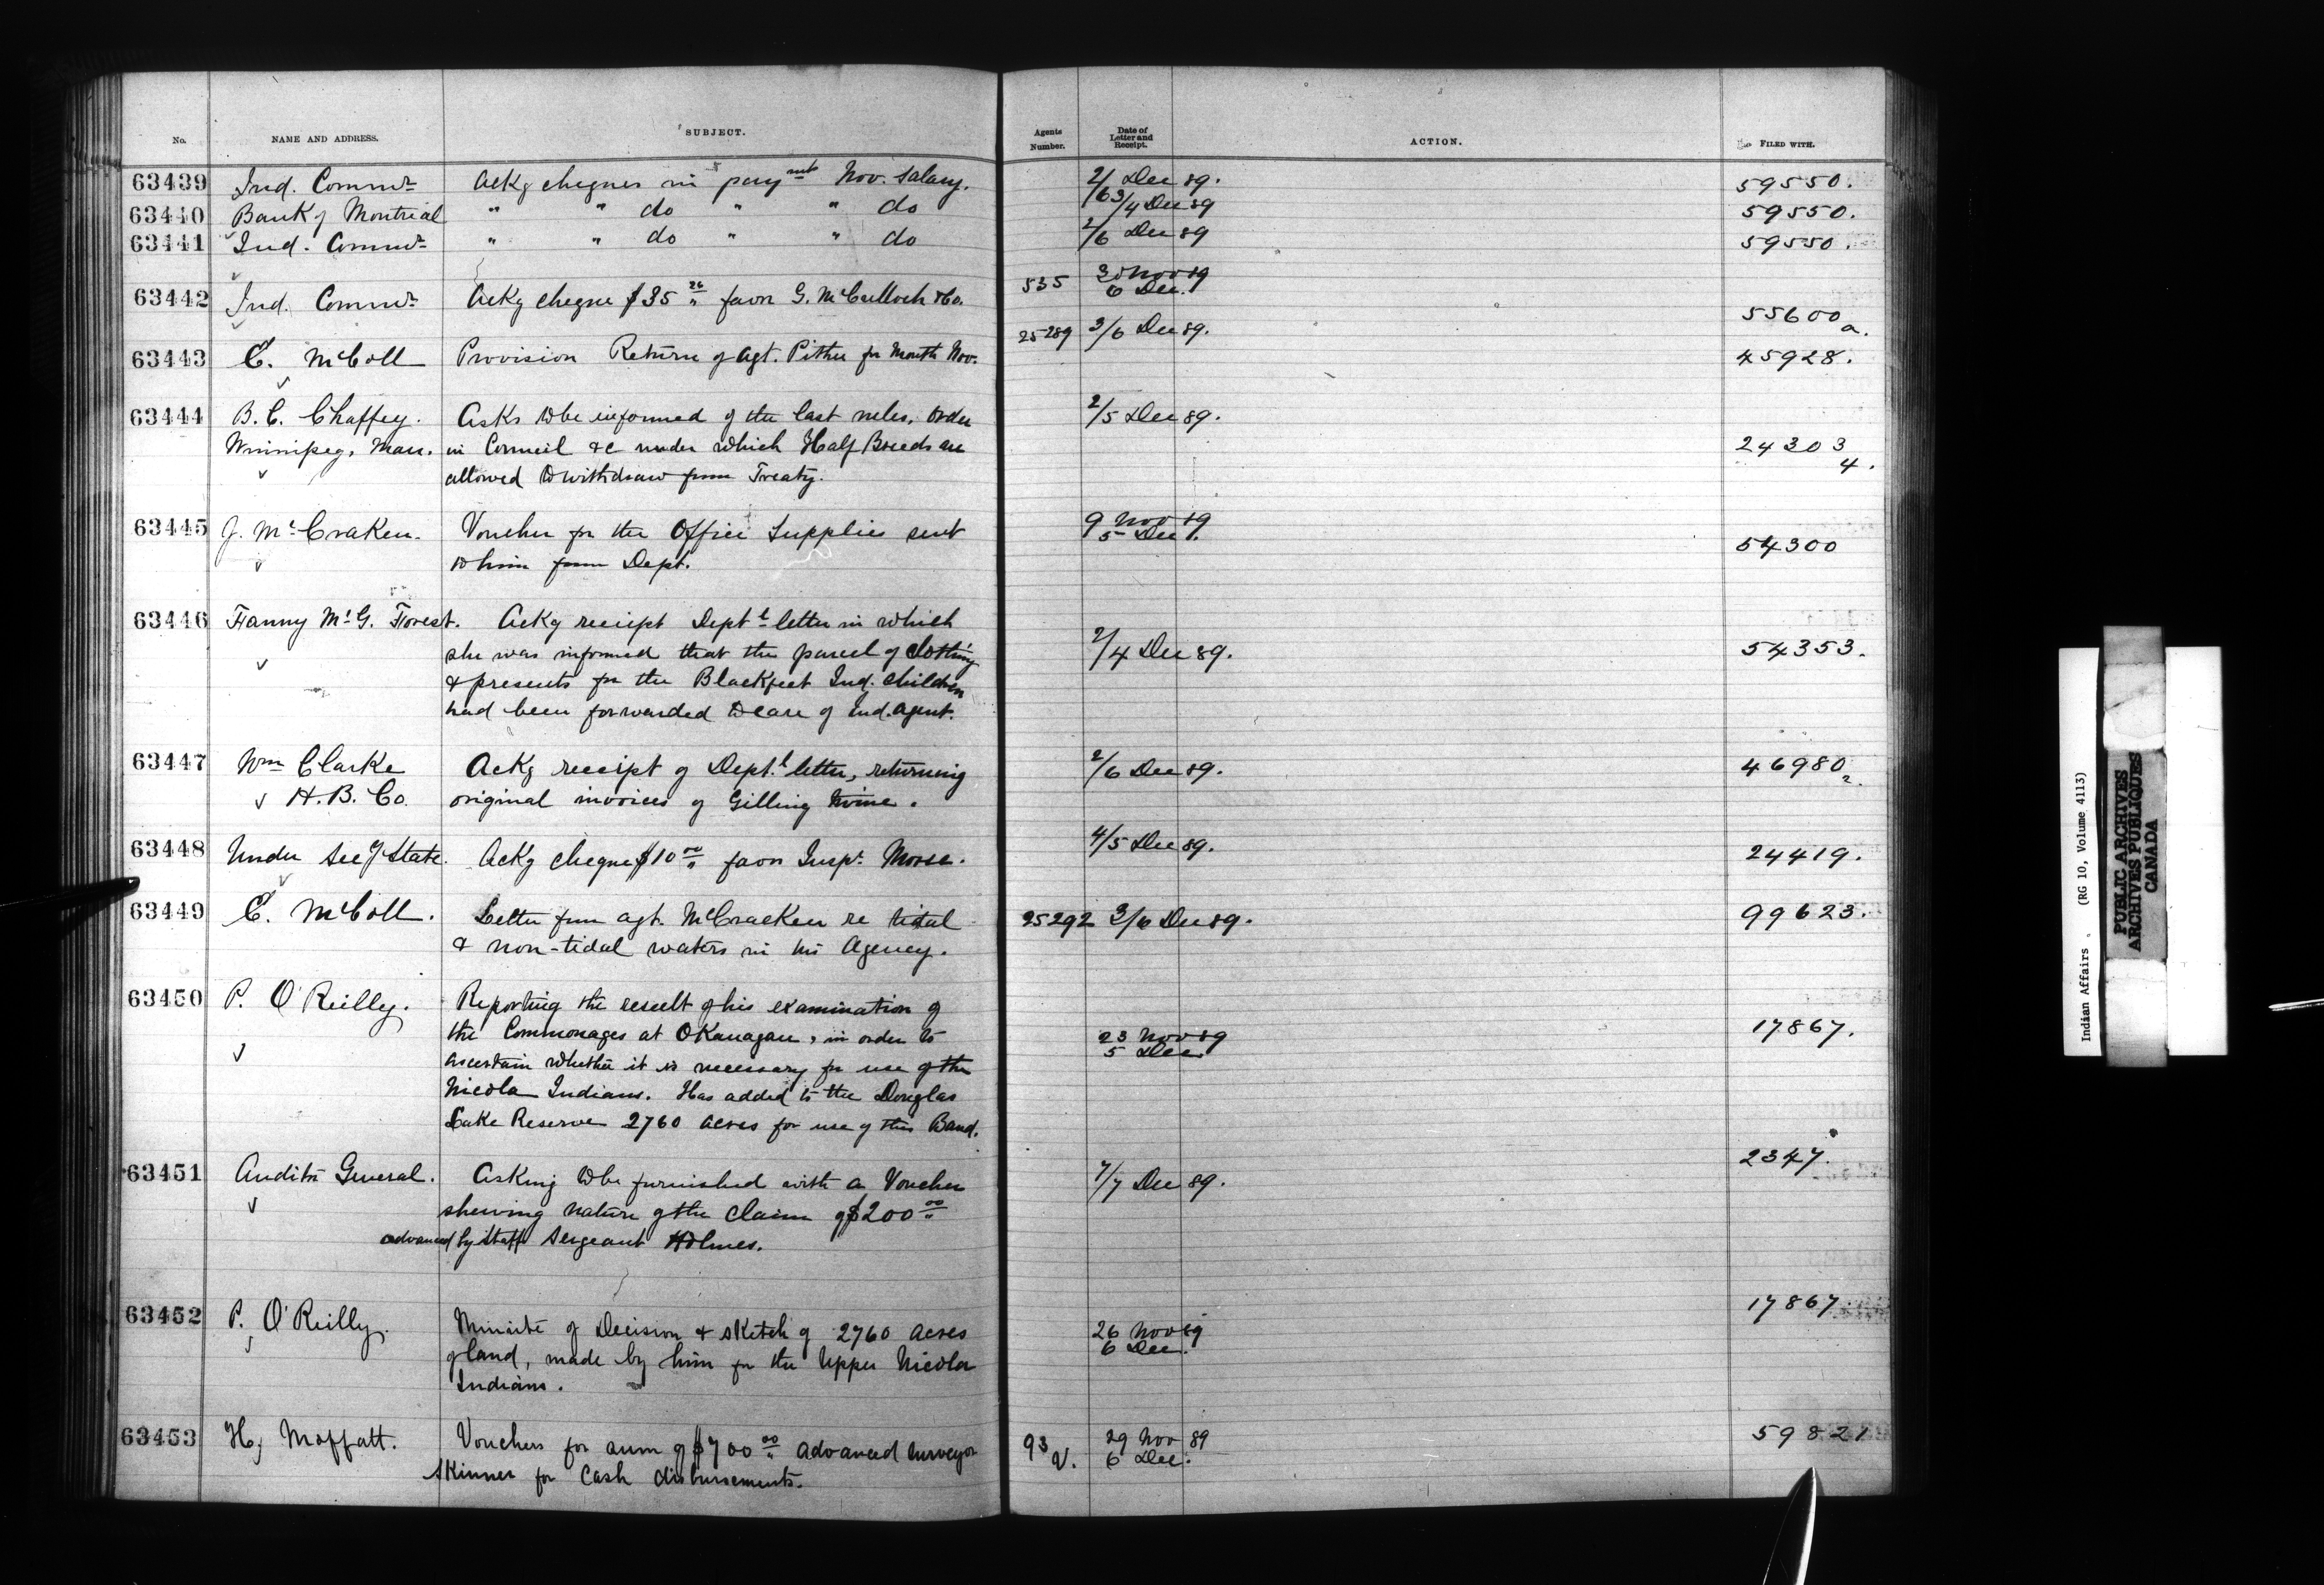 No. NAME AND ADDRESS. SUBJECT. Agents Number. Date of Letter and Receipt. ACTION. FILED WITH.
63439 Ind. Commr. Ackg cheques in paymt Nov. Salary. 2/6 Dec 89. 59550.
63440 Bank of Montreal " " do " " do 3/4 Dec 89 59550.
63441 Ind. Commr. " " do " " do 2/6 Dec 89 59550.
63442 Ind. Commr. Ackg cheque $35 26/" favor G. McCulloch & Co. 535 30 Nov 89 55600
6 Dec. a.
63443 E. McColl Provision Return of Agt. Pither for Month Nov. 25289 3/6 Dec 89. 45928.
63444 B. C. Chaffey. Asks to be informed of the last rules, Order 2/5 Dec 89.
Winnipeg, Man. in Council &c under which Half Breeds are 24303
allowed to withdraw from Treaty. 4.
63445 J. McCraken. Voucher for the Office Supplies sent 9 Nov 89
to him from Dept. 5 Dec. 54300
63446 Fanny McG. Forest. Ackg reciept Deptl letter in which
she was informed that the parcel of clothing 2/4 Dec 89. 54353.
& presents for the Blackfeet Ind. children
had been forwarded to care of Ind. Agent.
63447 Wm Clarke Ackg receipt of Dept.l letter, returning 2/6 Dec 89. 46980
H. B. Co. original invoices of Gilling twine. 2.
63448 Under Sec of State. Ackg cheque $10 00/" favor Inspr. Morse. 4/5 Dec 89. 24419.
63449 E. McColl. Letter from agt. McCracken re tidal 25292 3/6 Dec 89. 99623.
& non-tidal waters in his Agency.
63450 P. O'Reilly. Reporting the result of his examination of
the Commonages at OKanagan, in order to 23 Nov 89 17867.
ascertain whether it is necessary for use of the 5 Dec.
Nicola Indians. Has added to the Douglas
Lake Reserve 2760 acres for use of this Band.
63451 Auditor General. Asking to be furnished with a Voucher 7/7 Dec 89. 2347.
shewing nature of the claim of $200 00/"
advanced by Staff Sergeant Holmes.
63452 P. O'Reilly. Minute of Decision & sketch of 2760 acres 26 Nov 89 17867.
of land, made by him for the Upper Nicola 6 Dec.
Indians.
63453 Hy Moffatt. Vouchers for sum of $700 00/" advanced surveyor 93 29 Nov 89 59821
Skinner for Cash disbursements. V. 6 Dec.
Indian Affairs. (RG 10, Volume 4113)
PUBLIC ARCHIVES
ARCHIVES PUBLIQUES
CANADA